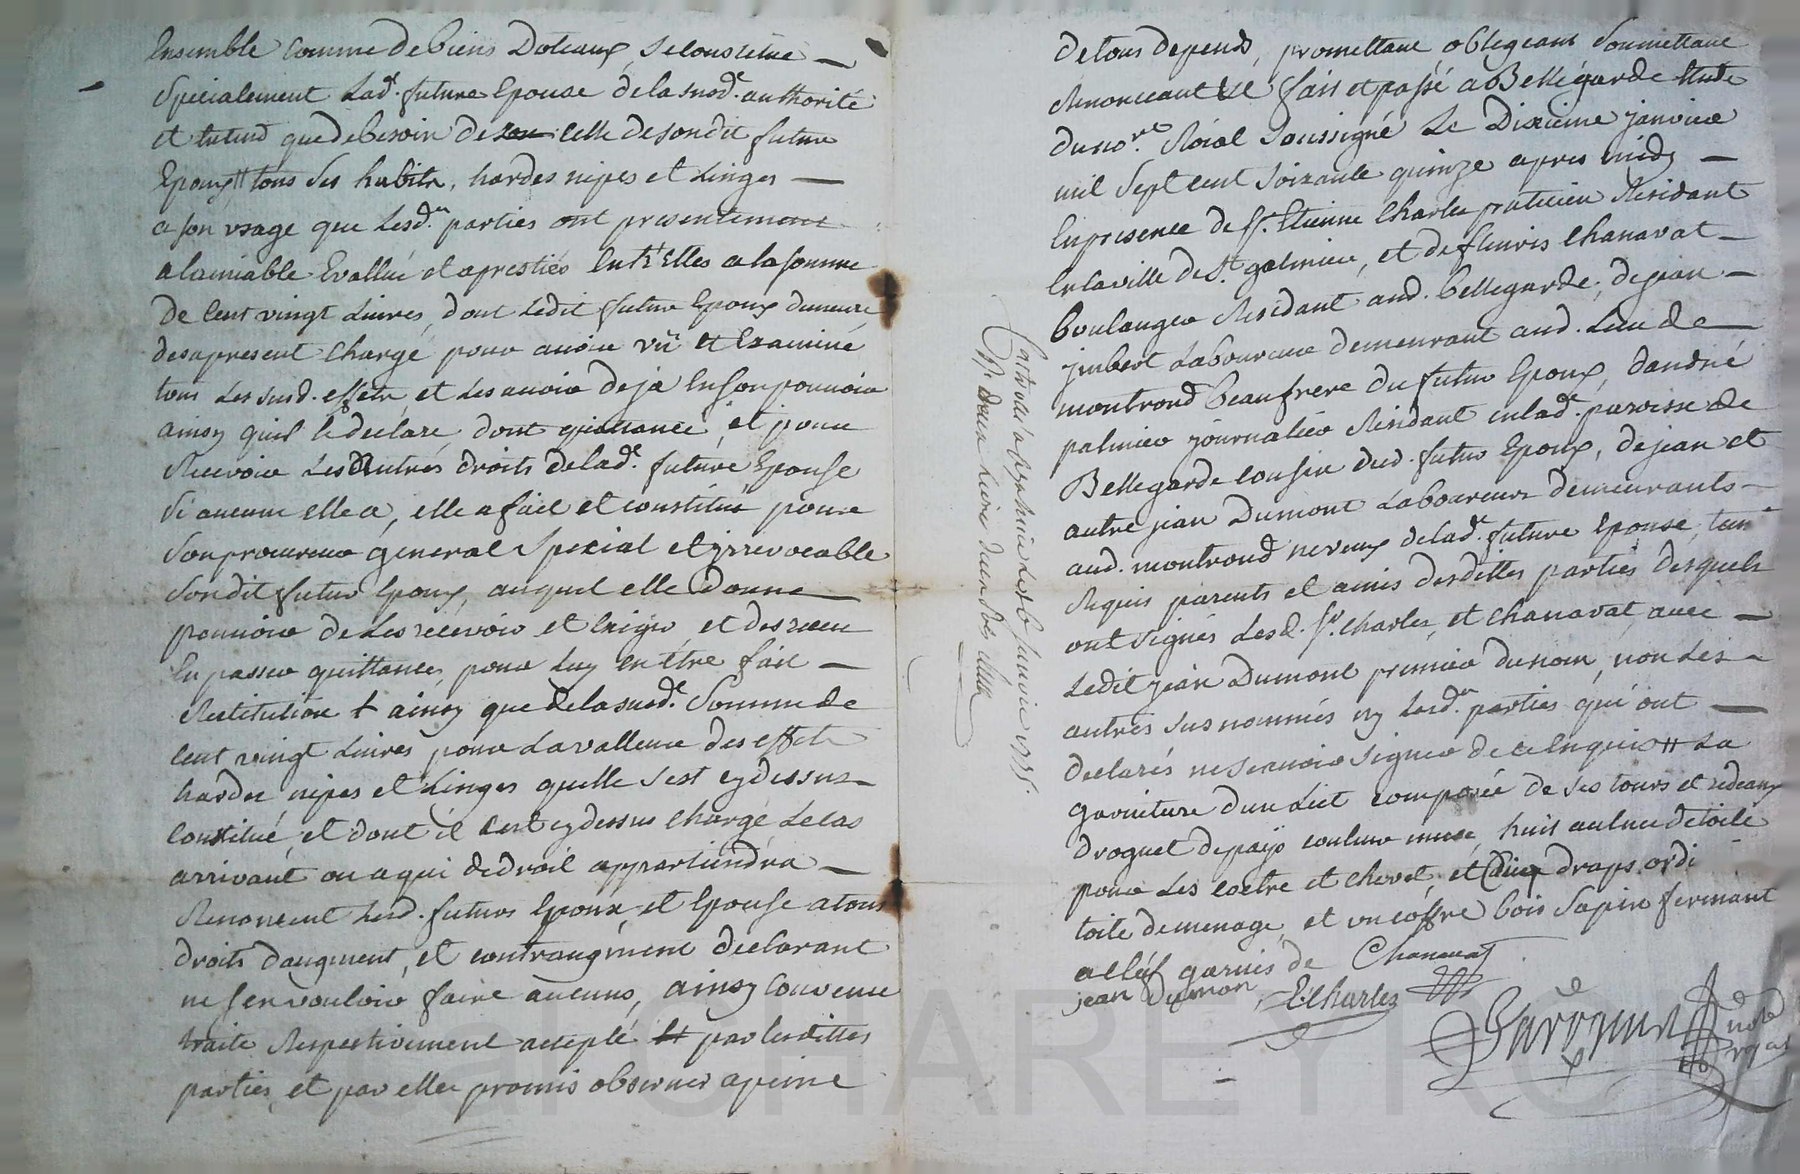 Ensemble comme de biens Doteaux, se constitue
Specialement Lad.e future Epouse de la susd.e authorité
et entend que de besoin de celle de son dit futur
Epoux // tous ses habits, hardes nipes et Linges
a son usage que Lesd.es parties ont presentement
a lamiable Evallué et apresties Entr'Elles a la somme
de Cent vingt Livres, dont Ledit futur Epoux demeure
des apresent Chargé pour avoir vü et Examiné
tous Les susd. effets, et Les avoir deja En son pouvoir
ainsy quil le declare, dont quittance, et pour
Recevoir Les Autres droits de lad.e future Epouse
si aucun elle a, elle a fait et constitué pour
son procureur general special et irrevocable
son dit futur Epoux, auquel elle donne
pouvoir de Les recevoir et Exiger, et des reçu
En passer quittances, pour Luy en être fait
Restitution + ainsy que de la susd.e Somme de
Cent vingt Livres pour La valleur des effets
hardes nipes et Linges quelle s'est cy dessus
Constitué, et dont il s'est cy dessus Chargé Le cas
arrivant ou a qui de droit appartiendra
Renoncent Lesd. futurs Epoux et Epouse a tous
droits daugment, et contraugment declarant
ne s'en vouloir faire aucuns, ainsy Convenu
traité Respectivement accepté par lesdittes
parties, et par elles promis observer a peine
de tous depends, promettant, obligeant Soumettant
Renonceant &c fait et passé a Bellegarde Etude
du no.re Roial Soussigné Le Dixieme janvier
mil sept cent soixante quinze apres midy
En presence de Sr. Etienne Charles praticien Residant
En la ville de St. galmier, et de fleuris Chanavat
boulanger Residant aud. bellegarde, de jean
jmbert Laboureur demeurant aud. Lieu de
montrond beaufrere du futur Epoux, dandré
palmier journalier Residant en lad.e paroisse de
Bellegarde cousin dud. futur Epoux, de jean et
autre jean Dumont Laboureurs demeurants
aud. montrond neveux de lad.e future Epouse, tous
Requis parents et amis desdittes parties desquels
ont signés Lesd. Srs. Charles, et Chanavat avec
Ledit jean Dumont premier du nom, non Les
autres susnommés ny Lesd.es parties qui ont
declarés ne scavoir signer de ce Enquis // La
garniture dun Lict composée de ses tours et rideaux
droguet de païs couleur muse, huit aulnes de toile
pour Les coetre et chevet, et Cinq draps ordi
toile de menage, et un coffre bois sapin fermant
a Clef garnis de Chanavat
jean Dumon E. Charles
note
royal
Controllé a St galmier Le 16 janvier 1775.